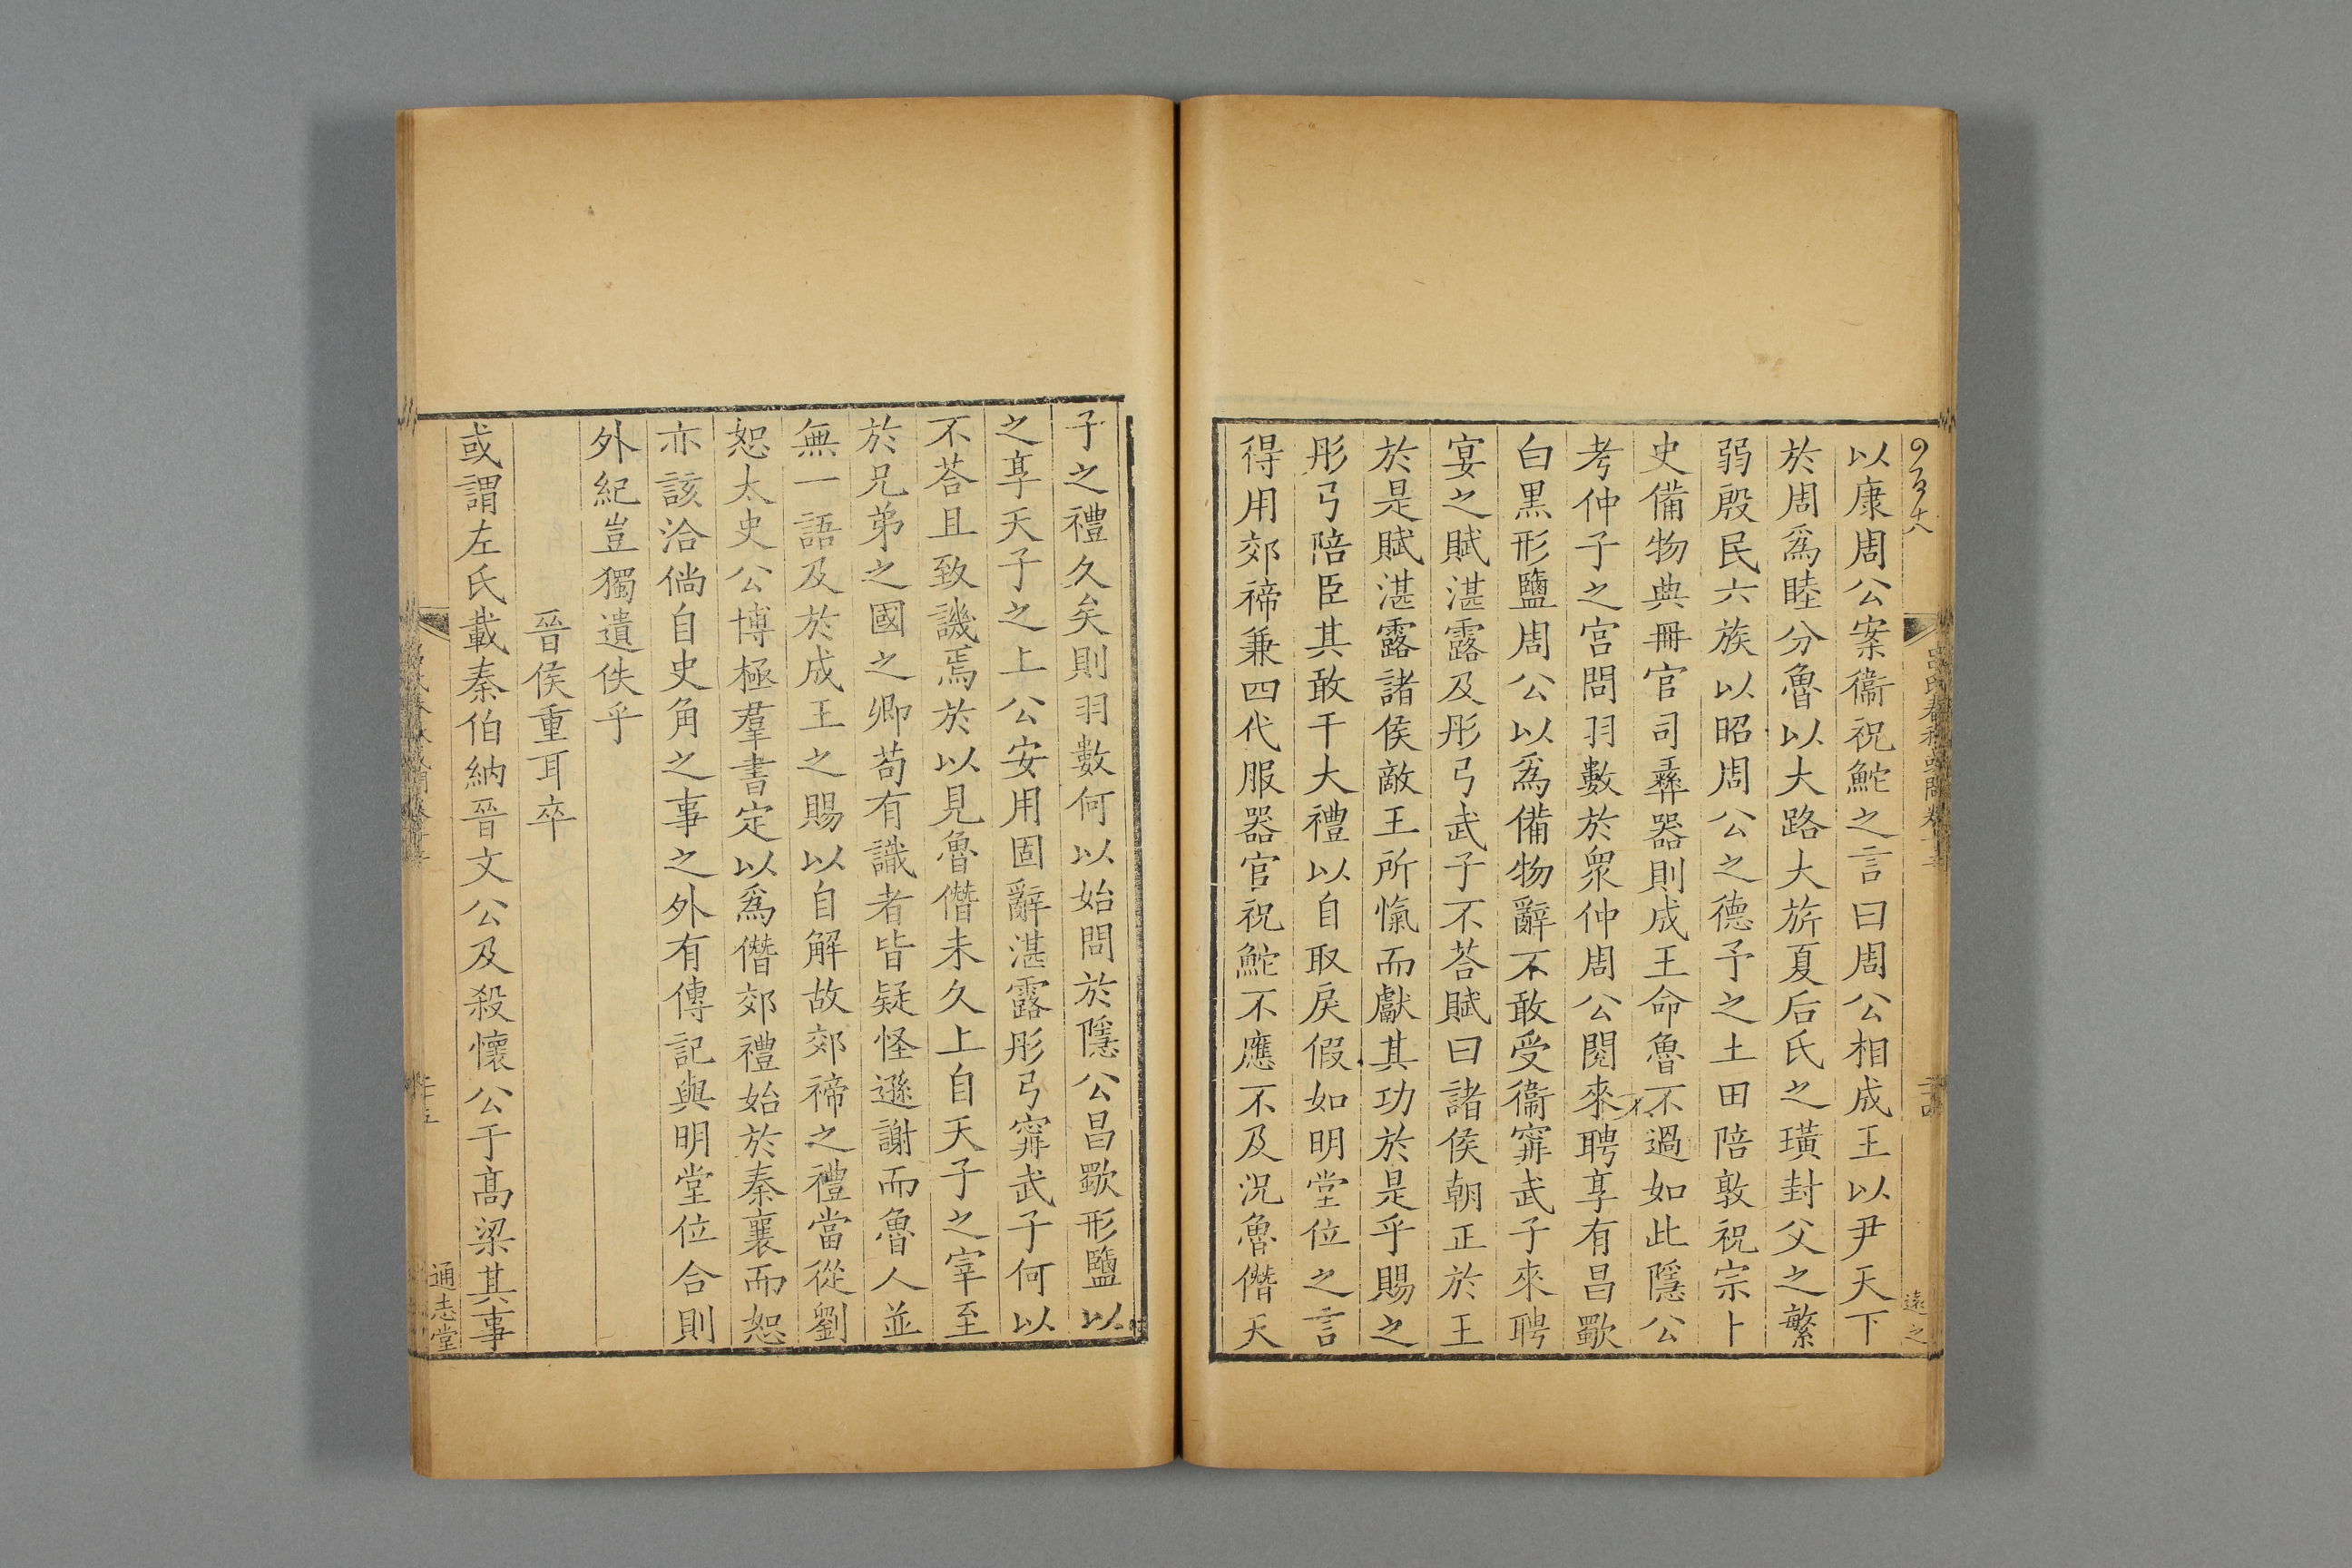 以康周公案衞祝鮀之言曰周公相成王以尹天下
於周爲睦分魯以大路大旂夏后氏之璜封父之繁
弱殷民六族以昭周公之德予之土田陪敦祝宗卜
史備物典冊官司彝器則成王命魯不過如此隱公
考仲子之宫問羽數於衆仲周公閱來聘享有昌歜
白黒形鹽周公以爲備物辭不敢受衞甯武子來聘
宴之賦湛露及彤弓武子不荅賦曰諸侯朝正於王
於是賦湛露諸侯敵王所愾而獻其功於是乎賜之
彤弓陪臣其敢干大禮以自取戾假如明堂位之言
得用郊禘兼四代服器官祝鮀不應不及況魯僭天
子之禮久矣則羽數何以始問於隱公昌歜形鹽以
之享天子之上公安用固辭湛露彤弓甯武子何以
不荅且致譏焉於以見魯僭未久上自天子之宰至
於兄弟之國之卿苟有識者皆疑怪遜謝而魯人並
無一語及於成王之賜以自解故郊禘之禮當從劉
恕太史公博極羣書定以爲僭郊禮始於秦襄而恕
亦該洽倘自史角之事之外有傳記與明堂位合則
外紀豈獨遺佚乎
晉侯重耳卒
或謂左氏載秦伯納晉文公及殺懷公于髙梁其事
通志堂